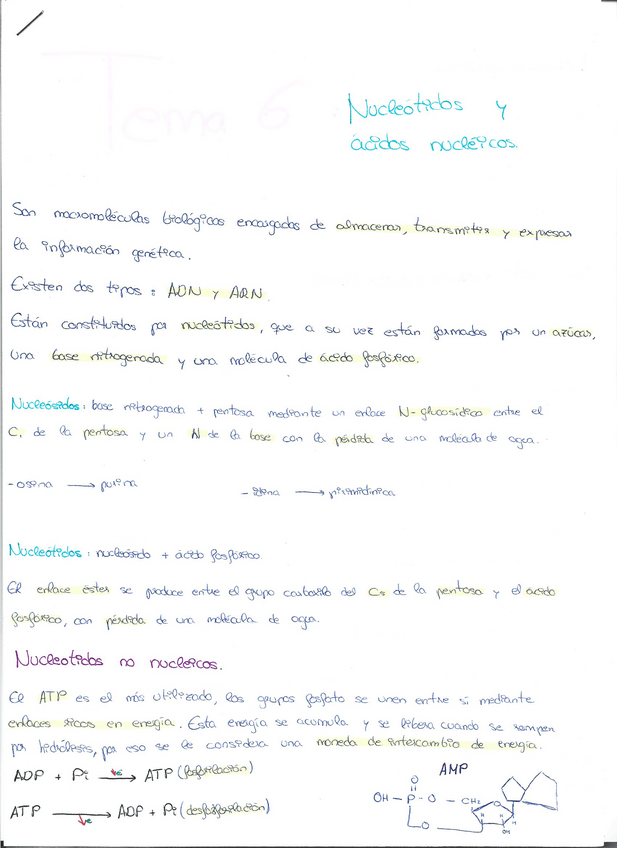 Tema 6
Nucleótidos y
ácidos nucléicos.
Son macromoléculas biológicas encargadas de almacenar, transmitir y expresar
la información genética.
Existen dos tipos: ADN y ARN.
Están constituidos por nucleótidos, que a su vez están formados por un azúcar,
una base nitrogenada y una molécula de ácido fosfórico.
Nucleósidos: base nitrogenada + pentosa mediante un enlace N-glucosídico entre el
C₁ de la pentosa y un N de la base con la pérdida de una molécula de agua.
-osina → purina
-idina → pirimidínica
Nucleótidos: nucleósido + ácido fosfórico
El enlace éster se produce entre el grupo carboxilo del C₅ de la pentosa y el ácido
fosfórico, con pérdida de una molécula de agua.
Nucleotidos no nucleicos.
El ATP es el más utilizado, los grupos fosfato se unen entre si mediante
enlaces ricos en energía. Esta energía se acumula y se libera cuando se rompen
por hidrólisis, por eso se le considera una moneda de intercambio de energía.
ADP + Pi → ATP (fosforilación)
AMP
O
OH - P - O - CH₂
O
O
H H
OH
ATP → ADP + Pi (desfosforilación)